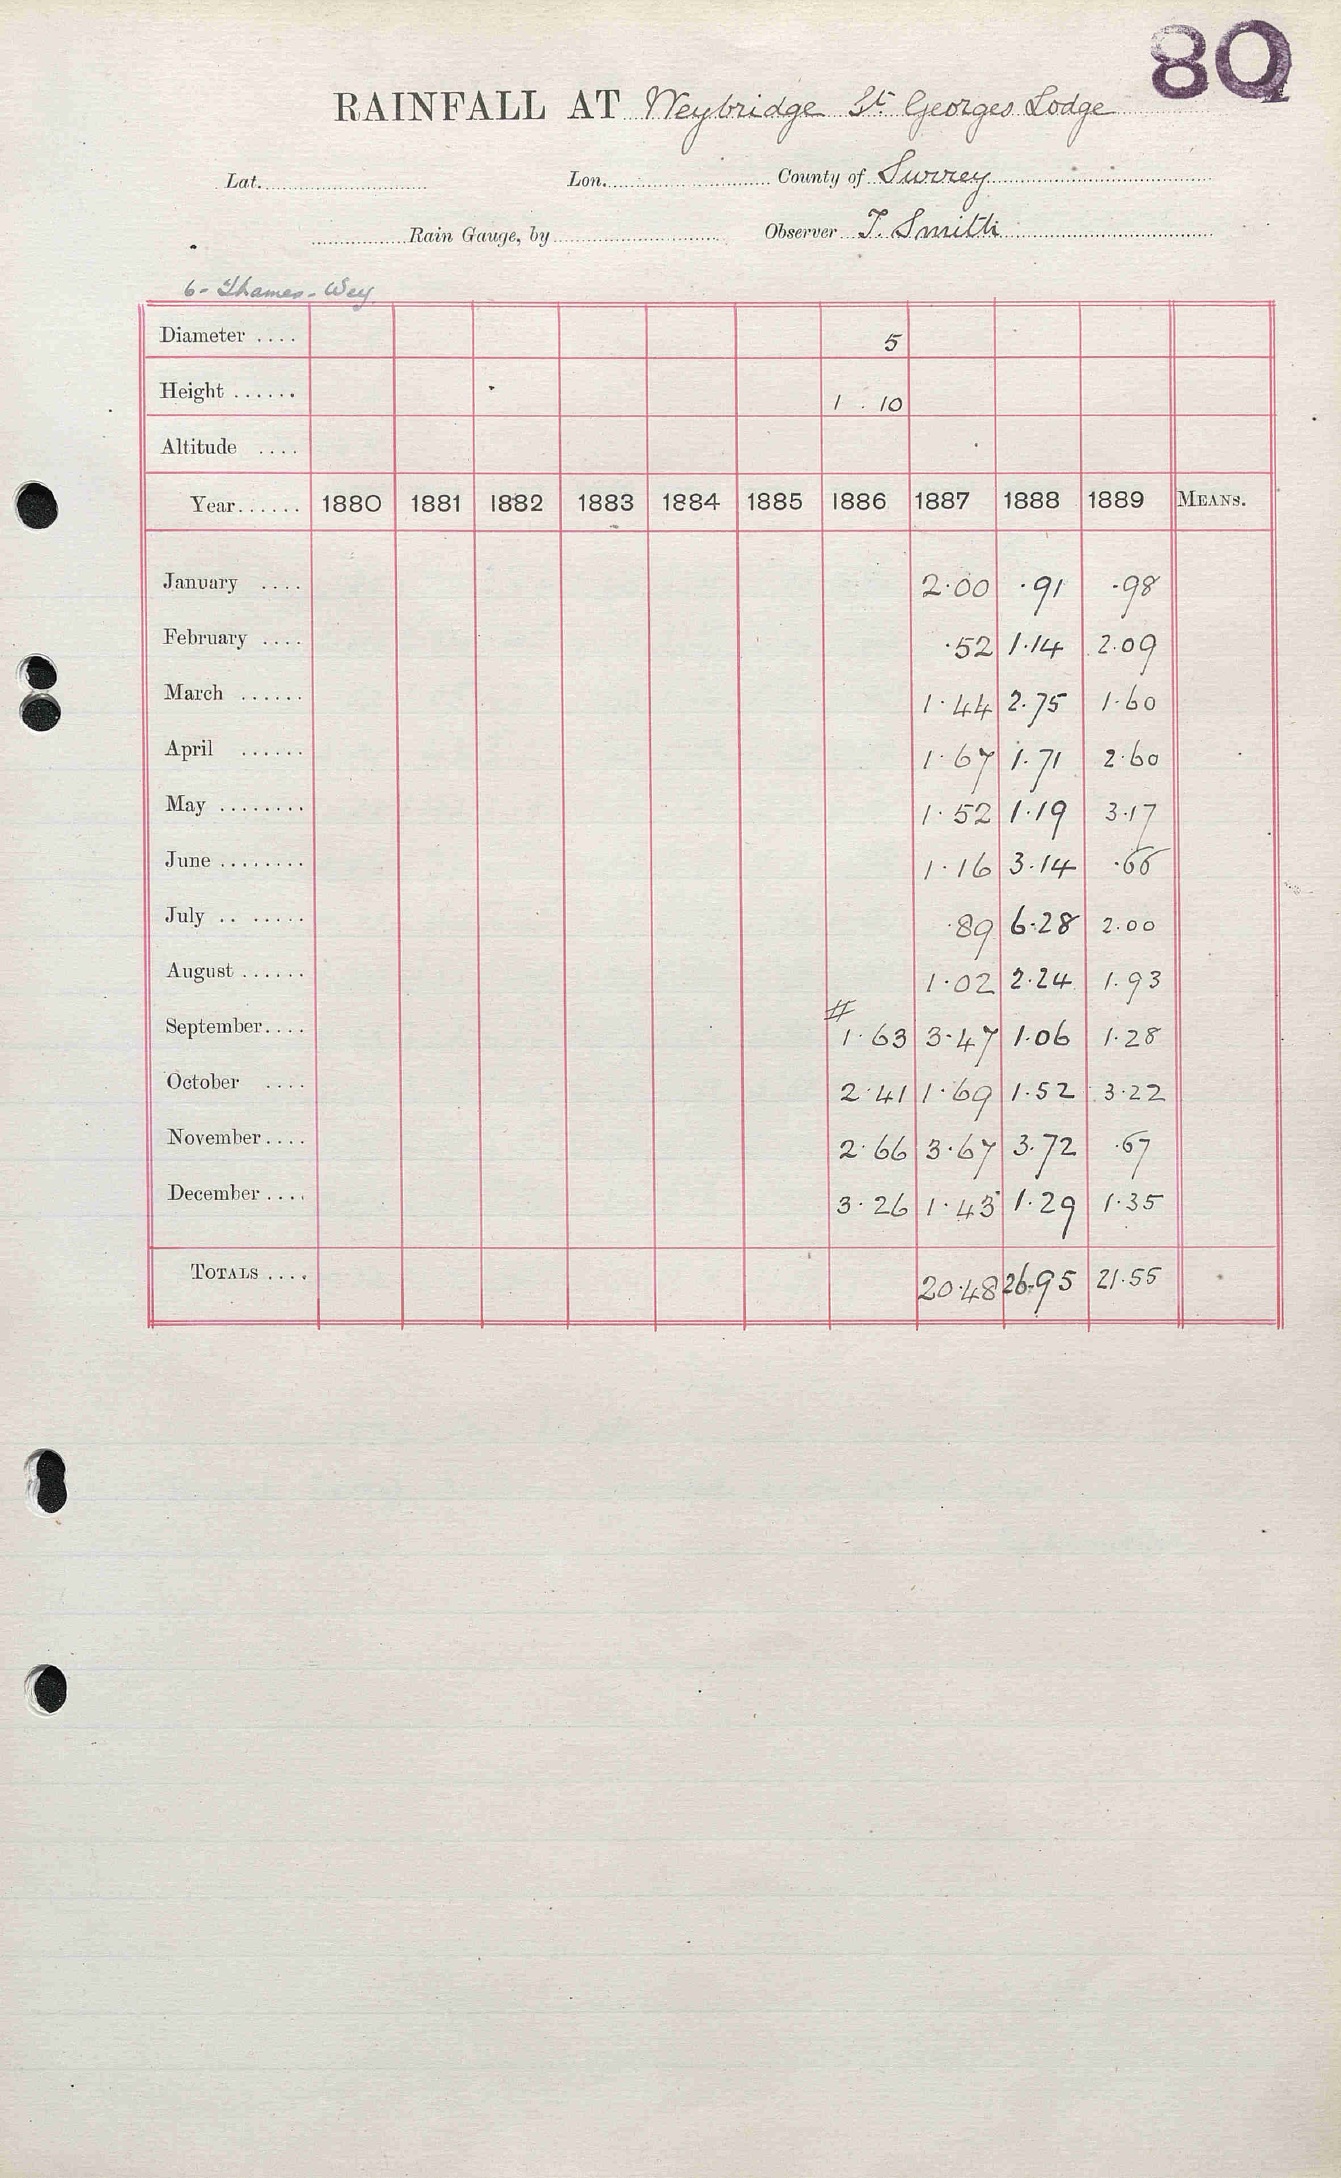 80
RAINFALL AT Weybridge St. Georges Lodge
Lat. Lon. County of Surrey
Rain Gauge, by Observer T. Smith
6- Thames - Wey
Diameter .... 5
Height ...... 1 . 10
Altitude ....
Year...... 1880 1881 1882 1883 1884 1885 1886 1887 1888 1889 MEANS.
January .... 2.00 .91 .98
February .... .52 1.14 2.09
March ...... 1.44 2.75 1.60
April ...... 1.67 1.71 2.60
May ........ 1.52 1.19 3.17
June ........ 1.16 3.14 .66
July .. ..... .89 6.28 2.00
August ...... 1.02 2.24 1.93
#
September.... 1.63 3.47 1.06 1.28
October .... 2.41 1.69 1.52 3.22
November.... 2.66 3.67 3.72 .67
December .... 3.26 1.43 1.29 1.35
TOTALS .... 20.48 26.95 21.55